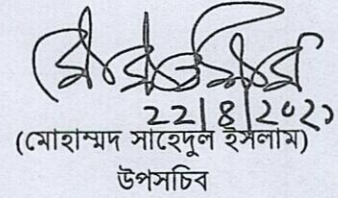 22/8/202১
(মোহাম্মদ সাহেদুল ইসলাম)
উপসচিব